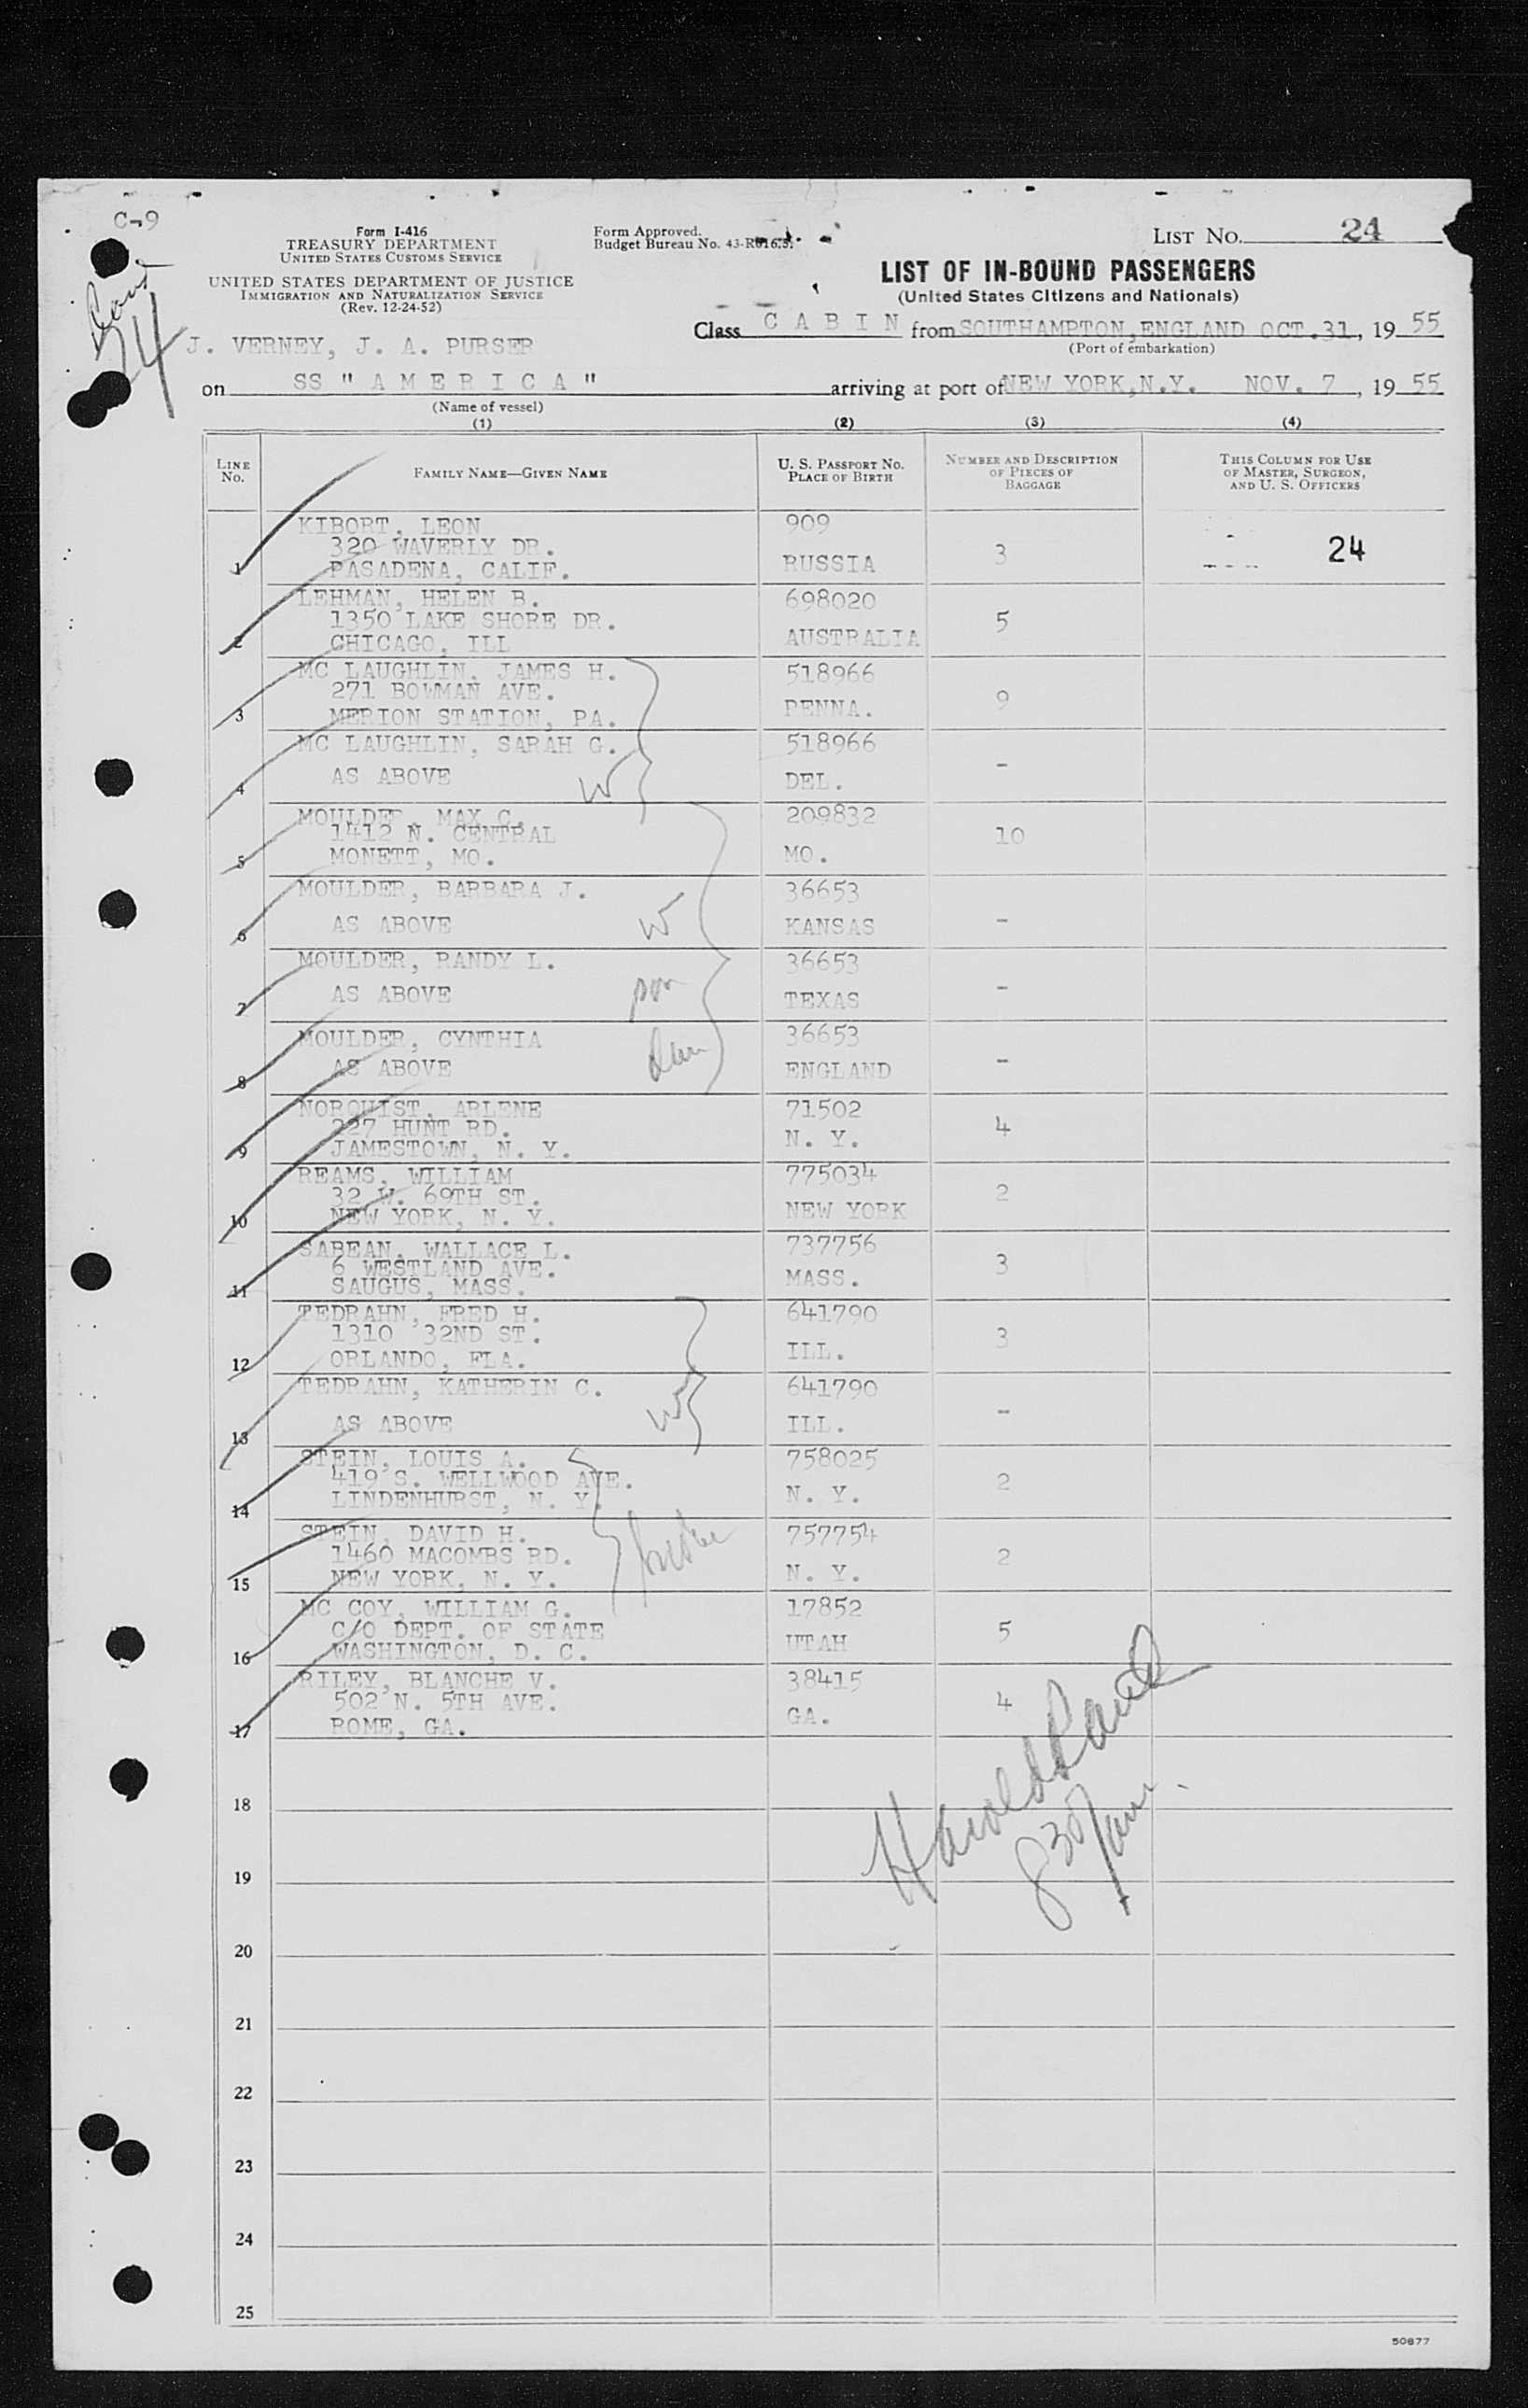 C-9
Form I-416
TREASURY DEPARTMENT
UNITED STATES CUSTOMS SERVICE
UNITED STATES DEPARTMENT OF JUSTICE
IMMIGRATION AND NATURALIZATION SERVICE
(Rev. 12-24-52)
Form Approved.
Budget Bureau No. 43-R016.3.
LIST NO. 24
LIST OF IN-BOUND PASSENGERS
(United States Citizens and Nationals)
Class CABIN from SOUTHAMPTON, ENGLAND OCT. 31, 1955
(Port of embarkation)
24
J. VERNEY, J. A. PURSER
on SS "AMERICA" arriving at port of NEW YORK, N.Y. NOV. 7, 1955
(Name of vessel)
(1) (2) (3) (4)
LINE No. FAMILY NAME—GIVEN NAME U. S. PASSPORT NO. PLACE OF BIRTH NUMBER AND DESCRIPTION OF PIECES OF BAGGAGE THIS COLUMN FOR USE OF MASTER, SURGEON, AND U. S. OFFICERS
KIBORT, LEON 909
320 WAVERLY DR. 3 24
1 PASADENA, CALIF. RUSSIA
LEHMAN, HELEN B. 698020
1350 LAKE SHORE DR. 5
2 CHICAGO, ILL AUSTRALIA
MC LAUGHLIN, JAMES H. 518966
271 BOWMAN AVE. 9
3 MERION STATION, PA. PENNA.
MC LAUGHLIN, SARAH G. 518966
4 AS ABOVE W DEL. -
MOULDER, MAX C. 209832
1412 N. CENTRAL 10
5 MONETT, MO. MO.
MOULDER, BARBARA J. 36653
6 AS ABOVE W KANSAS -
MOULDER, RANDY L. 36653
7 AS ABOVE son TEXAS -
MOULDER, CYNTHIA 36653
8 AS ABOVE dau ENGLAND -
NORQUIST, ARLENE 71502
227 HUNT RD. 4
9 JAMESTOWN, N. Y. N. Y.
REAMS, WILLIAM 775034
32 W. 69TH ST. 2
10 NEW YORK, N. Y. NEW YORK
SABEAN, WALLACE L. 737756
6 WESTLAND AVE. 3
11 SAUGUS, MASS. MASS.
TEDRAHN, FRED H. 641790
1310 32ND ST. 3
12 ORLANDO, FLA. ILL.
TEDRAHN, KATHERIN C. 641790
13 AS ABOVE W ILL. -
STEIN, LOUIS A. 758025
419 S. WELLWOOD AVE. 2
14 LINDENHURST, N. Y. N. Y.
STEIN, DAVID H. 757754
1460 MACOMBS RD. 2
15 NEW YORK, N. Y. N. Y.
MC COY, WILLIAM G. 17852
C/O DEPT. OF STATE 5
16 WASHINGTON, D. C. UTAH
RILEY, BLANCHE V. 38415
502 N. 5TH AVE. 4
17 ROME, GA. GA.
Harold
830 am
18
19
20
21
22
23
24
25
50877